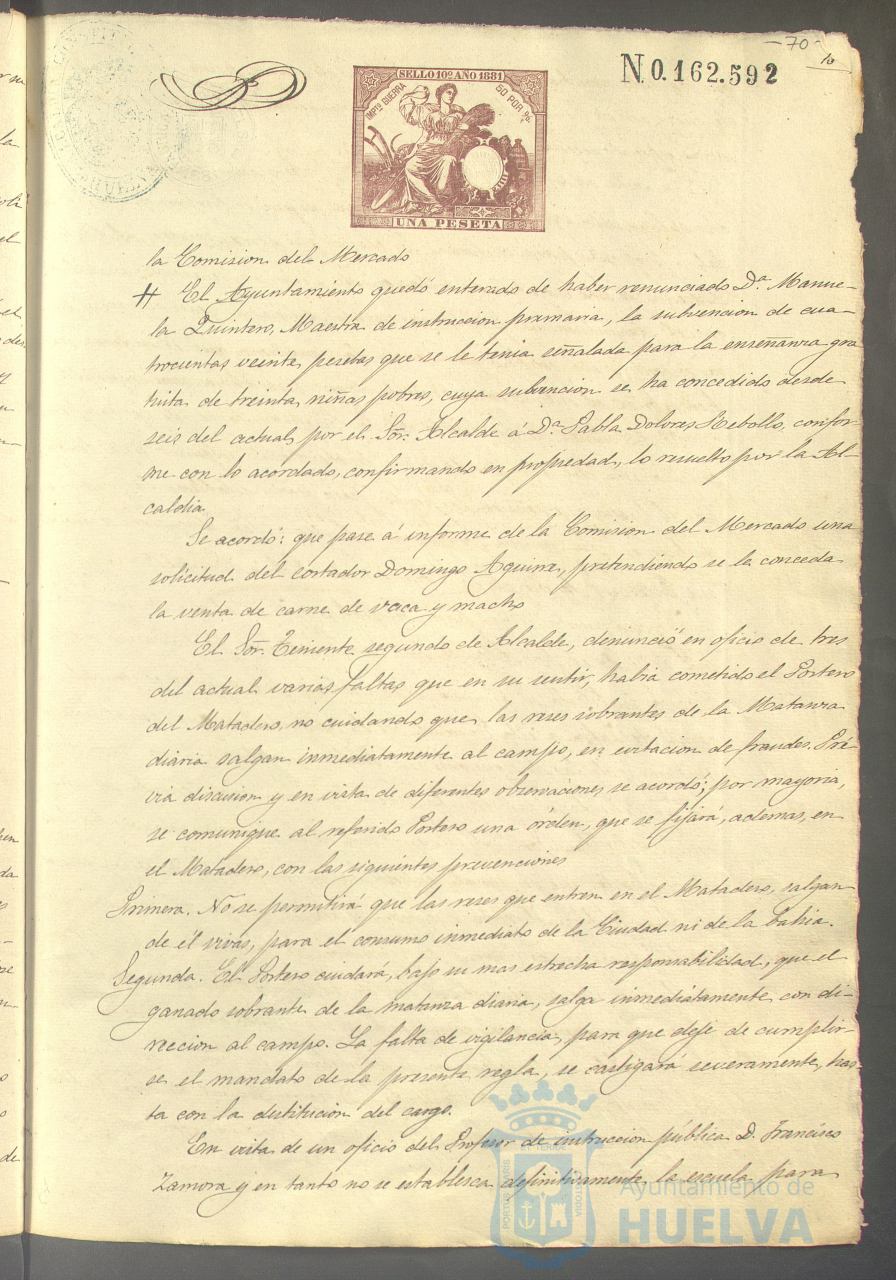 - 70 -
10
N 0.162.592
SELLO 10º AÑO 1881
IMPTO GUERRA 50 POR %
UNA PESETA
la Comision del Mercado
# El Ayuntamiento quedó enterado de haber renunciado D.ª Manue-
la Quintero, Maestra de instruccion primaria, la subvencion de cua-
trocientas veinte pesetas que se le tenia señalada para la enseñanza gra
tuita de treinta niñas pobres, cuya subvencion se ha concedido desde
seis del actual, por el Sor. Alcalde á D.ª Pabla Dolores Rebollo, confor-
me con lo acordado, confirmando en propiedad, lo resuelto por la Al
caldia.
Se acordó: que pase á informe de la Comision del Mercado una
solicitud del cortador Domingo Aguirre, pretendiendo se le conceda
la venta de carne de vaca y macho
El Sor. Teniente segundo de Alcalde, denunció en oficio de tres
del actual varias faltas que en su sentir, habia cometido el Portero
del Matadero, no cuidando que las reses sobrantes de la Matanza
diaria salgan inmediatamente al campo, en evitacion de fraudes. Pré-
via discusion y en vista de diferentes observaciones se acordó; por mayoria,
se comunique al referido Portero una órden, que se fijará, ademas, en
el Matadero, con las siguientes prevenciones
Primera. No se permitirá que las reses que entren en el Matadero, salgan
de él vivas, para el consumo inmediato de la Ciudad ni de la bahia.
Segunda. El Portero cuidará, bajo su mas estrecha responsabilidad, que el
ganado sobrante de la matanza diaria, salga inmediátamente con di-
reccion al campo. La falta de vigilancia, para que deje de cumplir-
se el mandato de la presente regla, se castigará severamente, has-
ta con la destitucion del cargo.
En vista de un oficio del Profesor de instruccion pública D. Francisco
Zamora y en tanto no se establesca definitivamente la escuela para
Ayuntamiento de
HUELVA